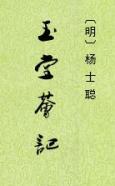 〔明〕杨士聪
玉堂荟記